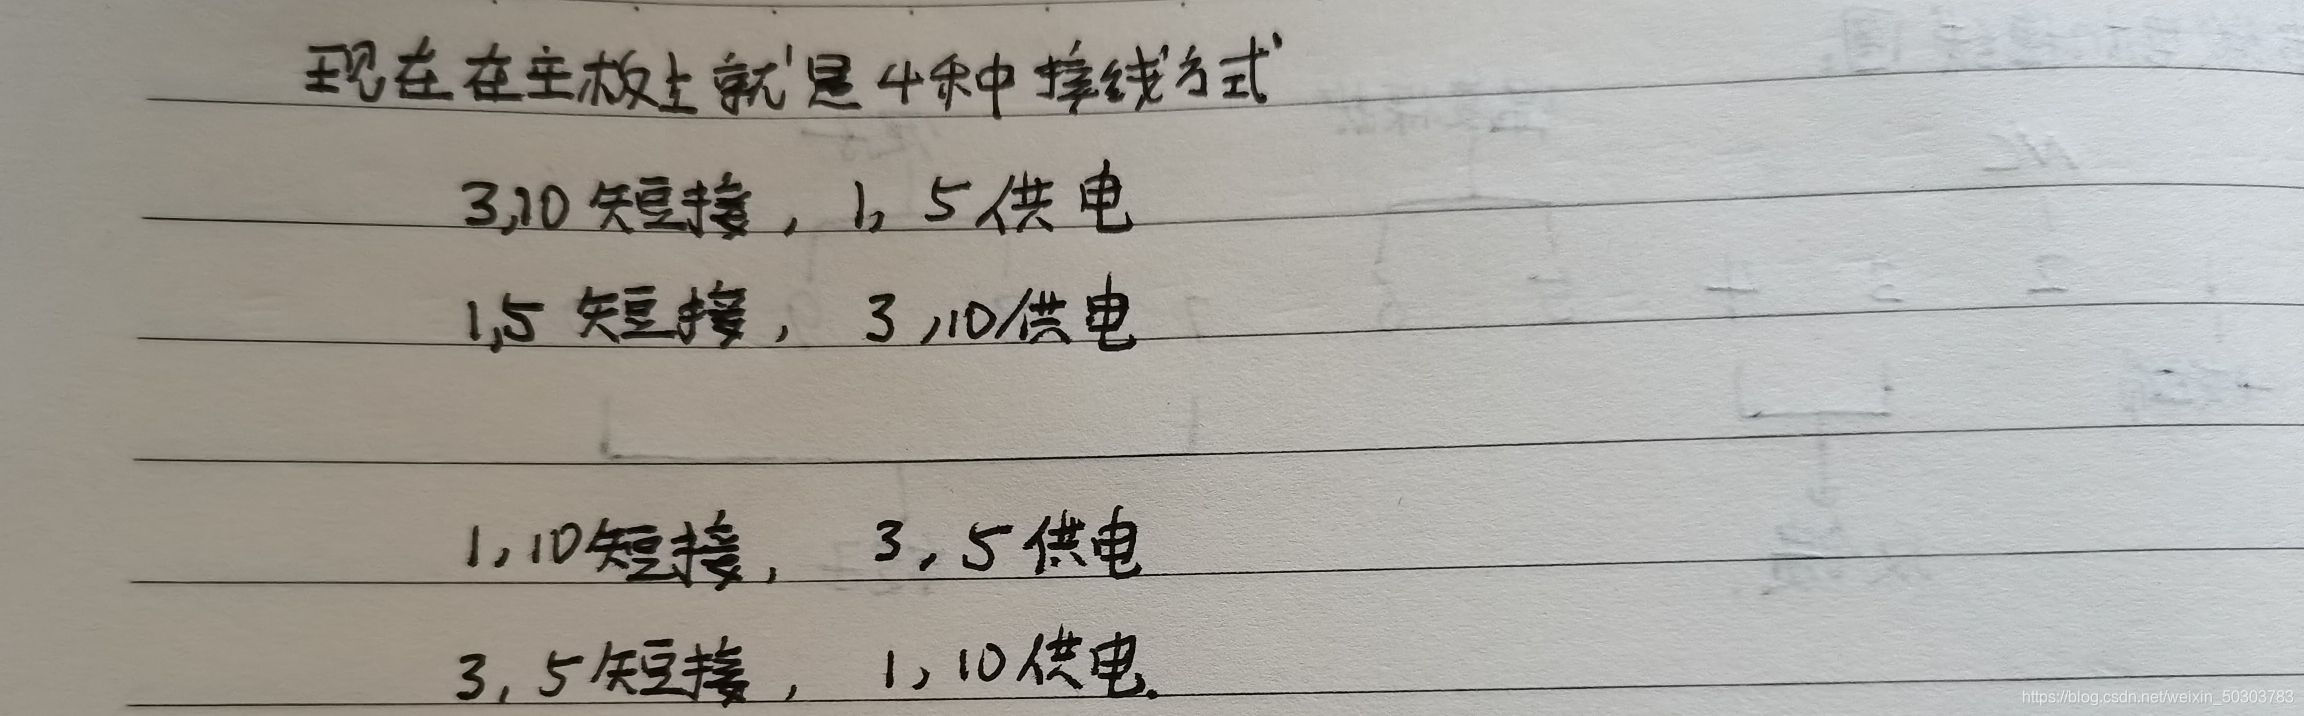 现在在主板上就是4种接线方式
3,10短接，1，5供电
1,5短接，3,10供电
1,10短接，3,5供电
3,5短接，1,10供电.
https://blog.csdn.net/weixin_50303783